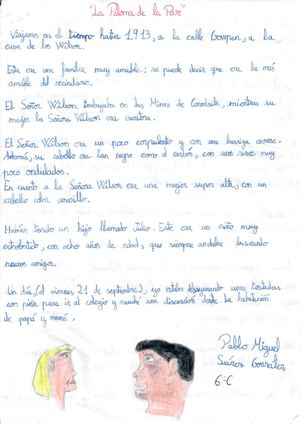 "La Paloma de la Paz"
Viajamos en el tiempo hasta 1.913, a la calle, a la
casa de los Wilson.
Esta era una familia muy amable; se puede decir que era la más
amable del vecindario.
El Señor Wilson trabajaba en las Minas de, mientras su
mujer la Señora Wilson era escritora.
El Señor Wilson era un poco corpulento y con una barriga enorme.
Además, su cabello era tan negro como el carbón, con unos rizos muy
poco ondulados.
En cuanto a la Señora Wilson era una mujer super alta, con un
cabello color amarillo.
Habían tenido un hijo llamado Julio. Este era un niño muy
extrovertido, con ocho años de edad, que siempre andaba buscando
nuevos amigos.
Un día, (el viernes 21 de septiembre), yo estaba desayunando unas tostadas
con piña para ir al colegio y escuché una discusión desde la habitación
de papá y mamá.
Pablo Miguel
Suárez González
6-C